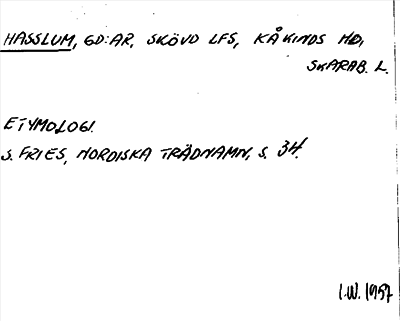 HASSLUM, GD:AR, SKÖVD LFS, KÅKINDS HD,
SKARAB. L.
ETYMOLOGI.
S. FRIES, NORDISKA TRÄDNAMN, S. 34.
I.W. 1957